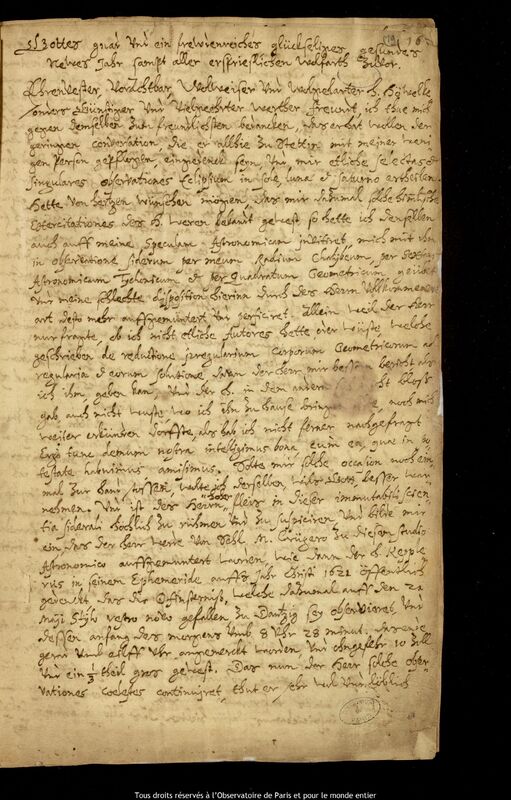 16
Gottes gnad Und ein frewdenreiches glückseliges, gesundes
Newes Jahr sampt aller ersprießlichen wolfarth Zuvor.
Ehrenvester, Vorachtbar, Wolweiser Und Wolgelarter H. Hewelke
sonders Günstiger Und Vielgeehrter werther freundt, ich thue mich
gegen demselben Zum freundlichsten bedancken, das er hat wollen der
geringen conversation, die er allhie Zu Stettin mit meiner weni
gen Person gepflogen, eingedenck seyn, Und mir etliche selectas et
singulares observationes Eclipsium in sole, luna et saturno ertheilen.
Hette Von hertzen wünschen mögen, das mir dazumal solche himlische
Exercitationes des H. weren bekandt gewest, so hette ich denselben
auch auff meine Speculam Astronomicam invitiret, mich mit ihm
in observatione siderum per meum Radium Chalybeum, per Sextan
Astronomicum Tychonicum et per Quadratum Geometricum geübet
Und meine schlechte disposition hierinn durch des Herrn Vollkommenere
art desto mehr auffgemuntert Und perficiret. Allein weil der Herr
nur fragte, ob ich nicht etliche Autores hette oder wüste welche
geschrieben de reductione irregularium corporum Geometricorum ad
regularia et eorum solutione, davon der Herr mir bessern bericht als
ich ihm, geben kan Und der H. in dem andern nicht bloß
gab, auch nicht wuste wo ich ihn zu hause noch mich
weiter erkunden dorffte, als hab ich nicht ferner nachgefragt
Ergo tunc demum nostra intelligimus bona, cum ea, quae in po
testate habuimus amisimus. Solte mir solche occasion noch ein
mal Zur hand stossen, wolte ich derselben besser war
nehmen. Und ist des Herrn hoher fleis in dieser immutabili scien
tia siderali höchlich Zu rühmen Und Zu suspiciren Und bilde mir
ein, das der Herr werde Von Sehl. M. Crügero Zu diesem studio
Astronomico auffgemuntert worden, wie dann der H. Keple
rus in seinem Ephemeride auffs Jahr Christi 1621 öffentlich
gedenckt, das die Ofinsternus, welche dazumal auff den 21
Maji Styli novo gefallen, Zu Dantzig sey observiret, Und
dessen anfang des morgens Umb 8 Uhr 28 minut. das ende
gerad Umb eilff Uhr angemerckt worden, Und ongefehr 10 Zoll
Und ein 1/3 theil gros gewest. Das nun der Herr solche obser
vationes coelestes continuiret, thut er sehr wol Und löblich
Tous droits réservés à l'Observatoire de Paris et pour le monde entier